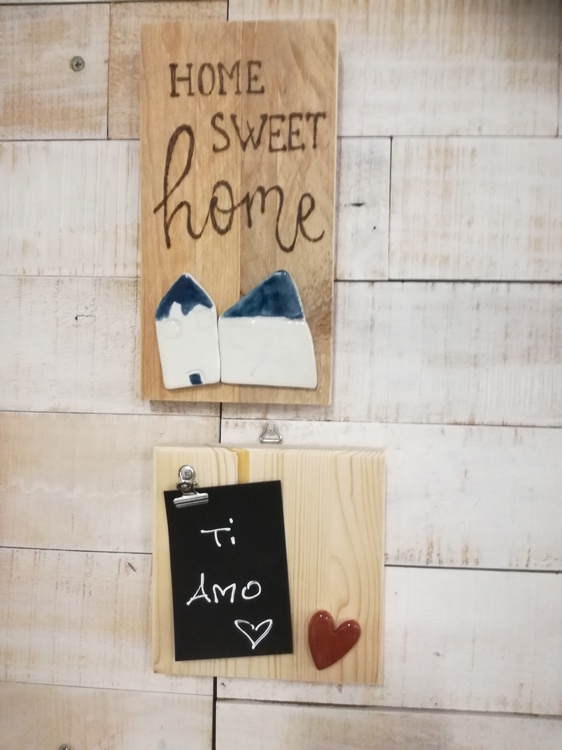 HOME
SWEET
home
Ti
AMO